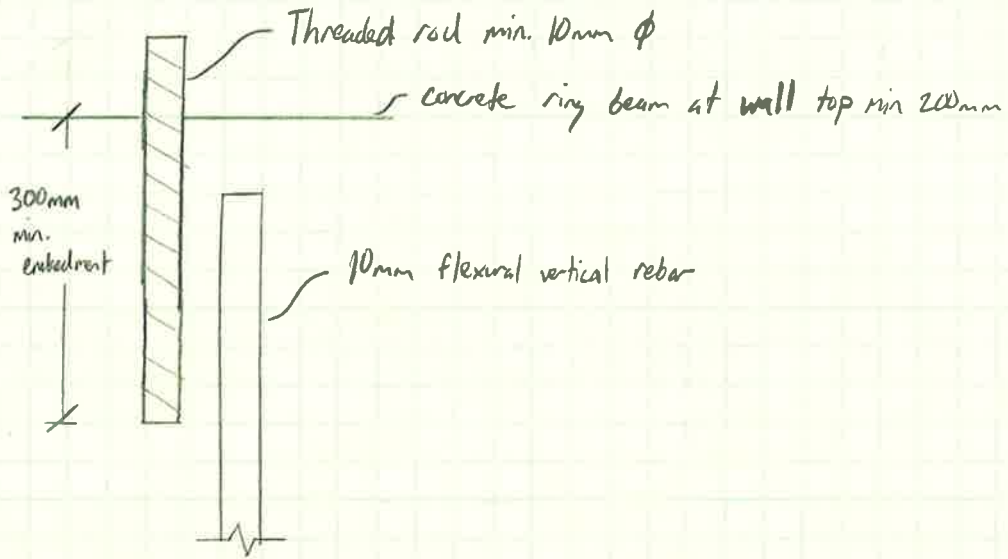 Threaded rod min. 10mm ϕ
concrete ring beam at wall top min 200mm
300mm
min.
embedment
10mm flexural vertical rebar